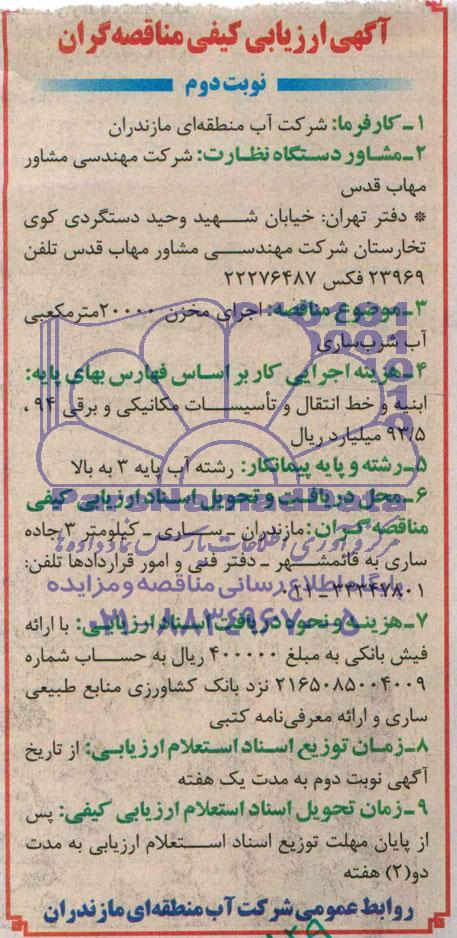 آگهی ارزیابی کیفی مناقصه‌گران
نوبت دوم
۱ـ کارفرما: شرکت آب منطقه‌ای مازندران
۲ـ مشاور دستگاه نظارت: شرکت مهندسی مشاور
مهاب قدس
* دفتر تهران: خیابان شهید وحید دستگردی کوی
تخارستان شرکت مهندسی مشاور مهاب قدس تلفن
۲۳۹۶۹ فکس ۲۲۲۷۶۴۸۷
۳ـ موضوع مناقصه: اجرای مخزن ۲۰۰۰۰ مترمکعبی
آب شرب ساری
۴ـ هزینه اجرایی کار بر اساس فهارس بهای پایه:
ابنیه و خط انتقال و تأسیسات مکانیکی و برقی ۹۴،
۹۲/۵ میلیارد ریال
۵ـ رشته و پایه پیمانکار: رشته آب پایه ۳ به بالا
۶ـ محل دریافت و تحویل اسناد ارزیابی کیفی
مناقصه گران: مازندران ـ ساری ـ کیلومتر ۳ جاده
ساری به قائمشهر ـ دفتر فنی و امور قراردادها تلفن:
۰۱۱ـ۳۳۳۴۷۸۰۱
۷ـ هزینه و نحوه دریافت اسناد ارزیابی: با ارائه
فیش بانکی به مبلغ ۴۰۰۰۰۰ ریال به حساب شماره
۲۱۶۵۰۸۵۰۰۴۰۰۹ نزد بانک کشاورزی منابع طبیعی
ساری و ارائه معرفی‌نامه کتبی
۸ـ زمان توزیع اسناد استعلام ارزیابی: از تاریخ
آگهی نوبت دوم به مدت یک هفته
۹ـ زمان تحویل اسناد استعلام ارزیابی کیفی: پس
از پایان مهلت توزیع اسناد استعلام ارزیابی به مدت
دو(۲) هفته
روابط عمومی شرکت آب منطقه‌ای مازندران
ParsNamadData
مرکز فرآوری اطلاعات پارس نماد داده‌ها
پایگاه اطلاع رسانی مناقصه و مزایده
۰۲۱-۸۸۳۴۹۶۷۰-۵